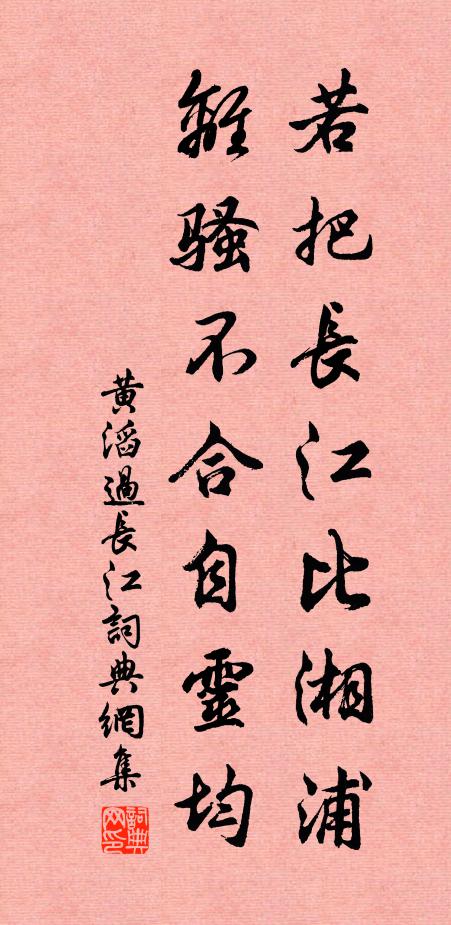 若把長江比湘浦
離騷不合自靈均
黃滔過長江詞典網集
詞典网印